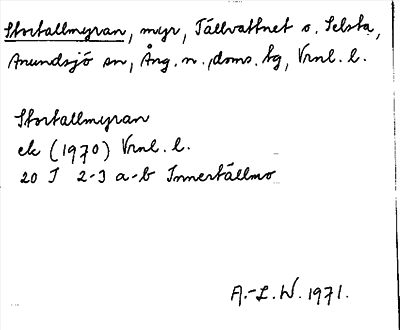 Stortallmyran, myr, Tällvattnet o. Selsta,
Anundsjö sn, Ång. n. doms. tg, Vrnl. l.
Stortallmyran
ek (1970) Vrnl. l.
20 I 2-3 a-b Innertällmo
A.-L. W. 1971.